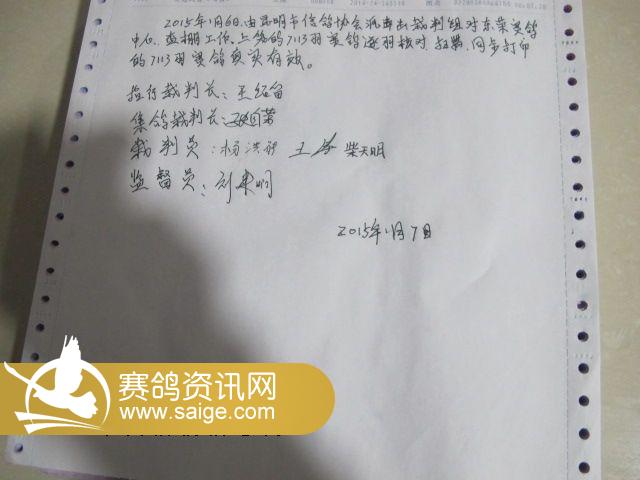 2015年1月6日.由昆明市信鸽协会派出裁判组对东荣赛鸽
中心.查棚工作.上统的7113羽赛鸽逐羽核对.扫描.同步打印
的7113羽赛鸽真实有效。
执行裁判长:王绍留
集鸽裁判长:
裁判员:杨洪 王 柴天明
监督员:
2015年1月7日
赛鸽资讯网
www.saige.com